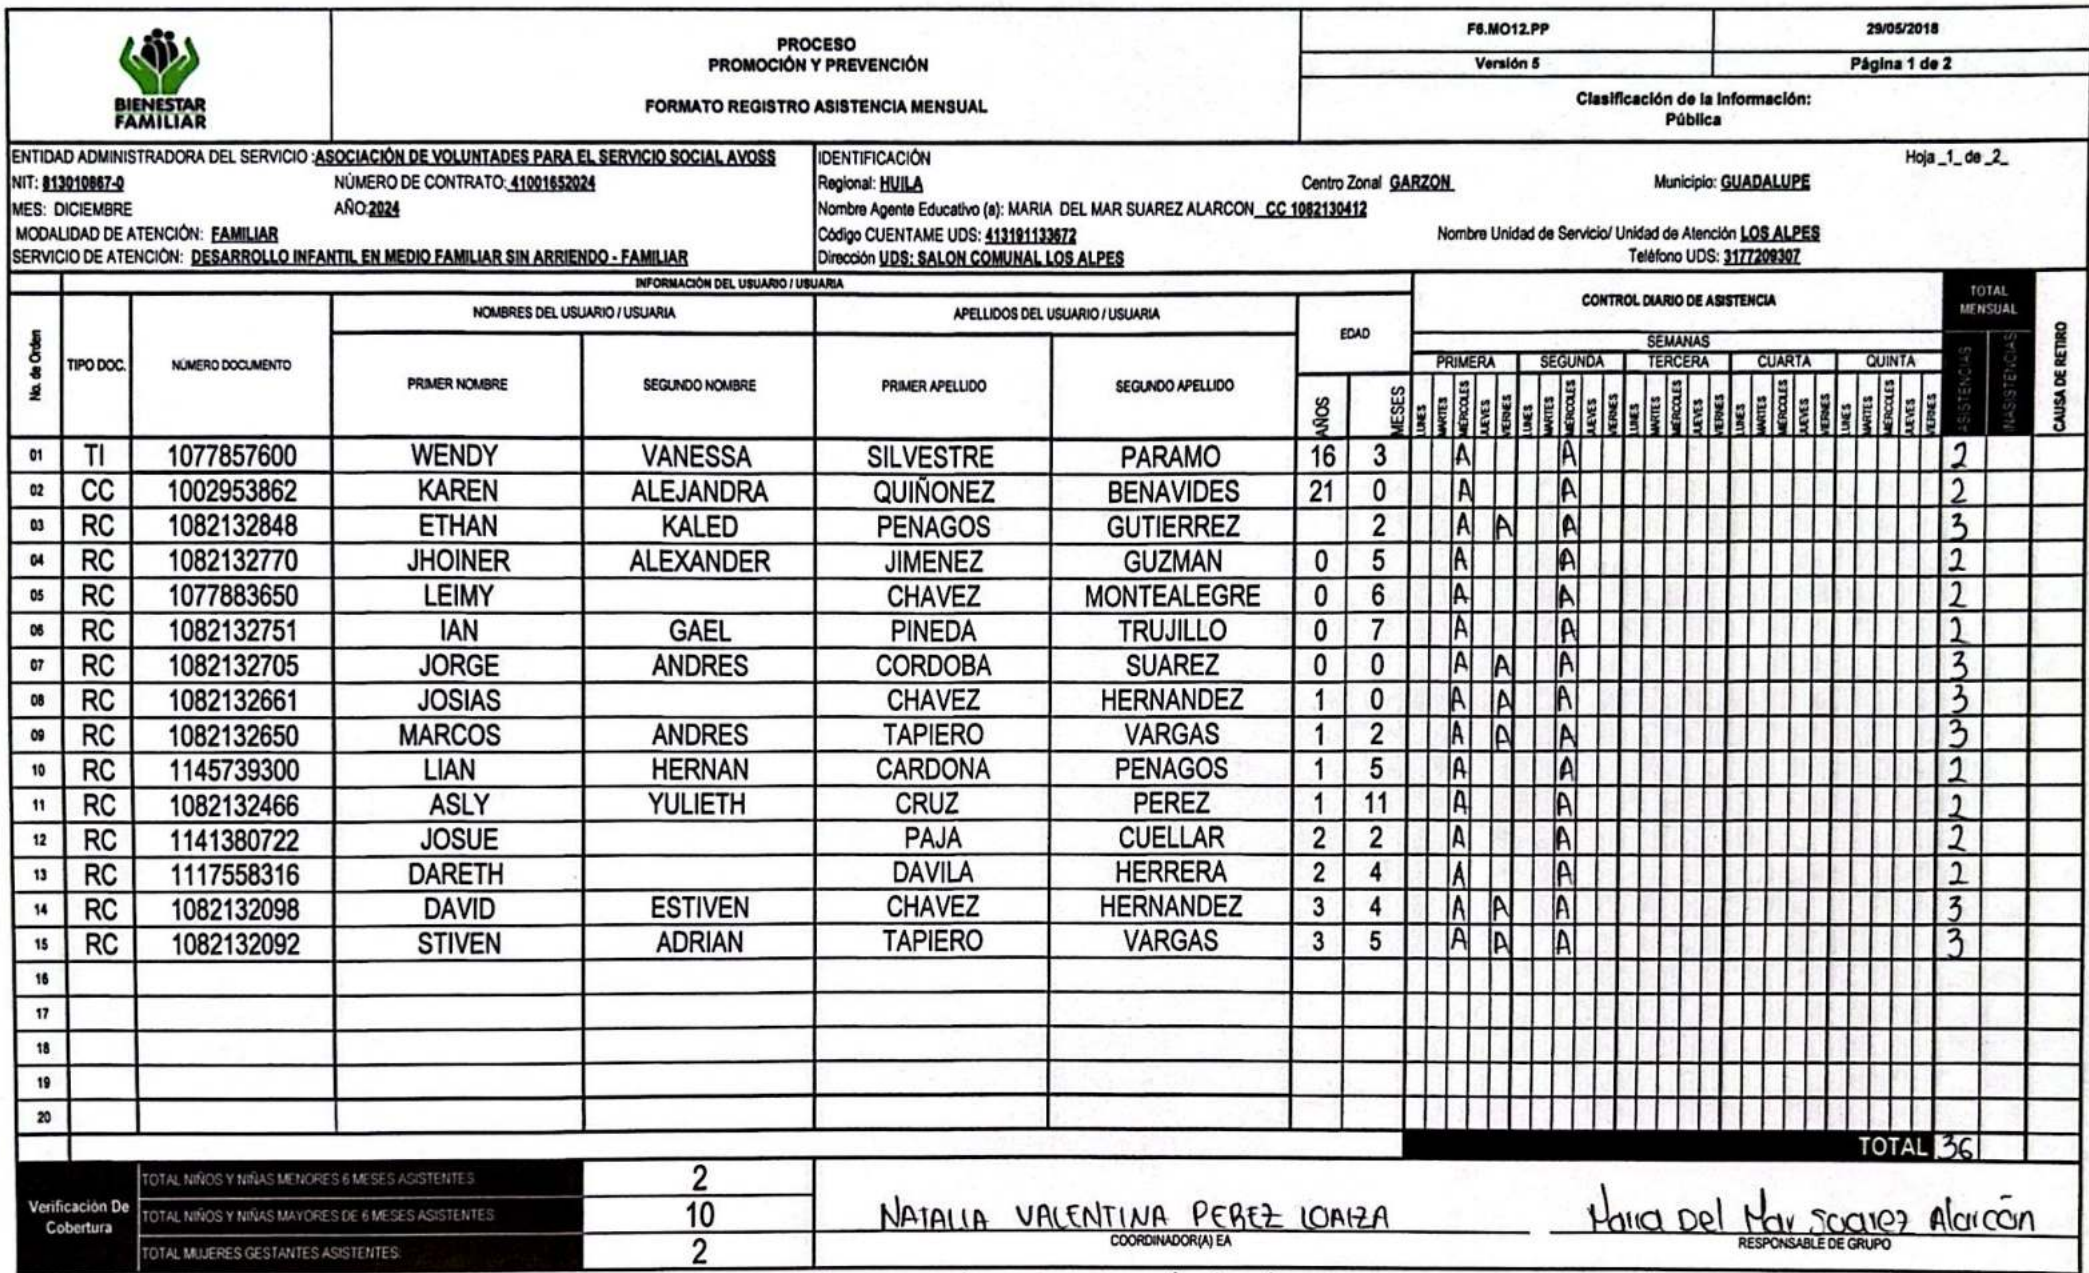 BIENESTAR
FAMILIAR
PROCESO
PROMOCIÓN Y PREVENCIÓN
FORMATO REGISTRO ASISTENCIA MENSUAL
F6.MO12.PP 29/05/2018
Versión 5 Página 1 de 2
Clasificación de la Información:
Pública
ENTIDAD ADMINISTRADORA DEL SERVICIO :ASOCIACIÓN DE VOLUNTADES PARA EL SERVICIO SOCIAL AVOSS
NIT: 813010867-0 NÚMERO DE CONTRATO: 41001652024
MES: DICIEMBRE AÑO:2024
MODALIDAD DE ATENCIÓN: FAMILIAR
SERVICIO DE ATENCIÓN: DESARROLLO INFANTIL EN MEDIO FAMILIAR SIN ARRIENDO - FAMILIAR
IDENTIFICACIÓN Hoja _1_ de _2_
Regional: HUILA Centro Zonal GARZON Municipio: GUADALUPE
Nombre Agente Educativo (a): MARIA DEL MAR SUAREZ ALARCON CC 1082130412
Código CUENTAME UDS: 413191133672 Nombre Unidad de Servicio/ Unidad de Atención LOS ALPES
Dirección UDS: SALON COMUNAL LOS ALPES Teléfono UDS: 3177209307
INFORMACIÓN DEL USUARIO / USUARIA
No. de Orden TIPO DOC. NÚMERO DOCUMENTO
NOMBRES DEL USUARIO / USUARIA APELLIDOS DEL USUARIO / USUARIA EDAD
PRIMER NOMBRE SEGUNDO NOMBRE PRIMER APELLIDO SEGUNDO APELLIDO AÑOS MESES
CONTROL DIARIO DE ASISTENCIA
SEMANAS
PRIMERA SEGUNDA TERCERA CUARTA QUINTA
LUNES MARTES MIERCOLES JUEVES VIERNES LUNES MARTES MIERCOLES JUEVES VIERNES LUNES MARTES MIERCOLES JUEVES VIERNES LUNES MARTES MIERCOLES JUEVES VIERNES LUNES MARTES MIERCOLES JUEVES VIERNES
TOTAL MENSUAL
ASISTENCIAS INASISTENCIAS
CAUSA DE RETIRO
01 TI 1077857600 WENDY VANESSA SILVESTRE PARAMO 16 3 A A 2
02 CC 1002953862 KAREN ALEJANDRA QUIÑONEZ BENAVIDES 21 0 A A 2
03 RC 1082132848 ETHAN KALED PENAGOS GUTIERREZ 2 A A A 3
04 RC 1082132770 JHOINER ALEXANDER JIMENEZ GUZMAN 0 5 A A 2
05 RC 1077883650 LEIMY CHAVEZ MONTEALEGRE 0 6 A A 2
06 RC 1082132751 IAN GAEL PINEDA TRUJILLO 0 7 A A 2
07 RC 1082132705 JORGE ANDRES CORDOBA SUAREZ 0 0 A A A 3
08 RC 1082132661 JOSIAS CHAVEZ HERNANDEZ 1 0 A A A 3
09 RC 1082132650 MARCOS ANDRES TAPIERO VARGAS 1 2 A A A 3
10 RC 1145739300 LIAN HERNAN CARDONA PENAGOS 1 5 A A 2
11 RC 1082132466 ASLY YULIETH CRUZ PEREZ 1 11 A A 2
12 RC 1141380722 JOSUE PAJA CUELLAR 2 2 A A 2
13 RC 1117558316 DARETH DAVILA HERRERA 2 4 A A 2
14 RC 1082132098 DAVID ESTIVEN CHAVEZ HERNANDEZ 3 4 A A A 3
15 RC 1082132092 STIVEN ADRIAN TAPIERO VARGAS 3 5 A A A 3
16
17
18
19
20
TOTAL 36
Verificación De Cobertura
TOTAL NIÑOS Y NIÑAS MENORES 6 MESES ASISTENTES 2
TOTAL NIÑOS Y NIÑAS MAYORES DE 6 MESES ASISTENTES 10
TOTAL MUJERES GESTANTES ASISTENTES: 2
NATALIA VALENTINA PEREZ LOAIZA
COORDINADOR(A) EA
Maria Del Mar Suarez Alarcón
RESPONSABLE DE GRUPO